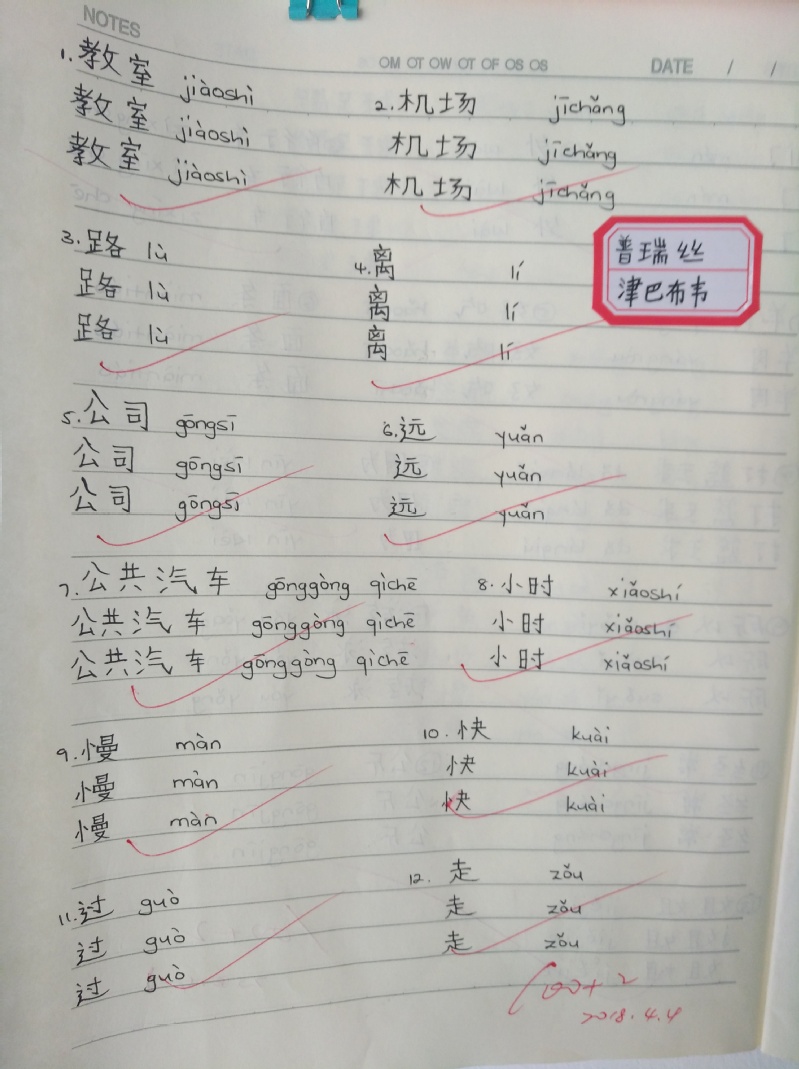 NOTES
OM OT OW OT OF OS OS
DATE / /
1. 教室 jiàoshì
教室 jiàoshì
教室 jiàoshì
2. 机场 jīchǎng
机场 jīchǎng
机场 jīchǎng
普瑞丝
津巴布韦
3. 路 lù
路 lù
路 lù
4. 离 lí
离 lí
离 lí
5. 公司 gōngsī
公司 gōngsī
公司 gōngsī
6. 远 yuǎn
远 yuǎn
远 yuǎn
7. 公共汽车 gōnggòng qìchē
公共汽车 gōnggòng qìchē
公共汽车 gōnggòng qìchē
8. 小时 xiǎoshí
小时 xiǎoshí
小时 xiǎoshí
9. 慢 màn
慢 màn
慢 màn
10. 快 kuài
快 kuài
快 kuài
11. 过 guò
过 guò
过 guò
12. 走 zǒu
走 zǒu
走 zǒu
100+2
2018.4.4